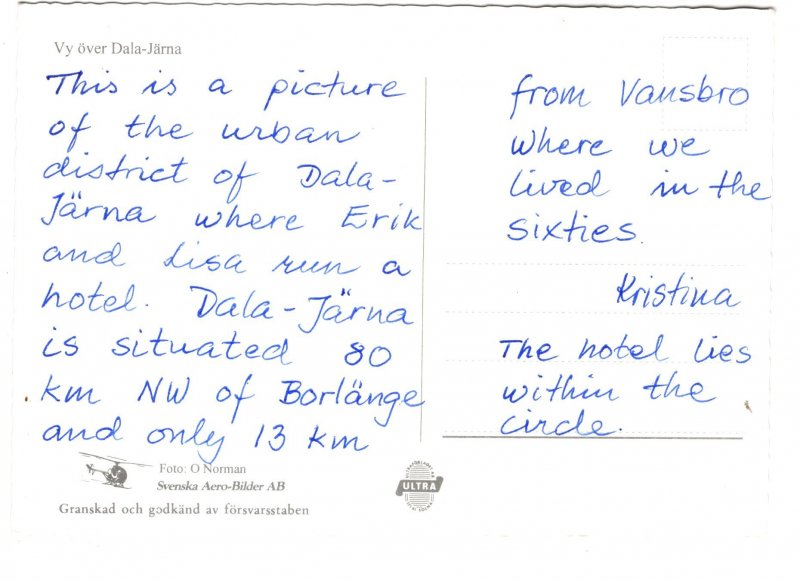 Vy över Dala-Järna
This is a picture
of the urban
district of Dala-
Järna where Erik
and Lisa run a
hotel. Dala-Järna
is situated 80
km NW of Borlänge
and only 13 km
from Vansbro
where we
lived in the
sixties.
Kristina
The hotel lies
within the
circle.
Foto: O Norman
Svenska Aero-Bilder AB
Granskad och godkänd av försvarsstaben
ULTRA